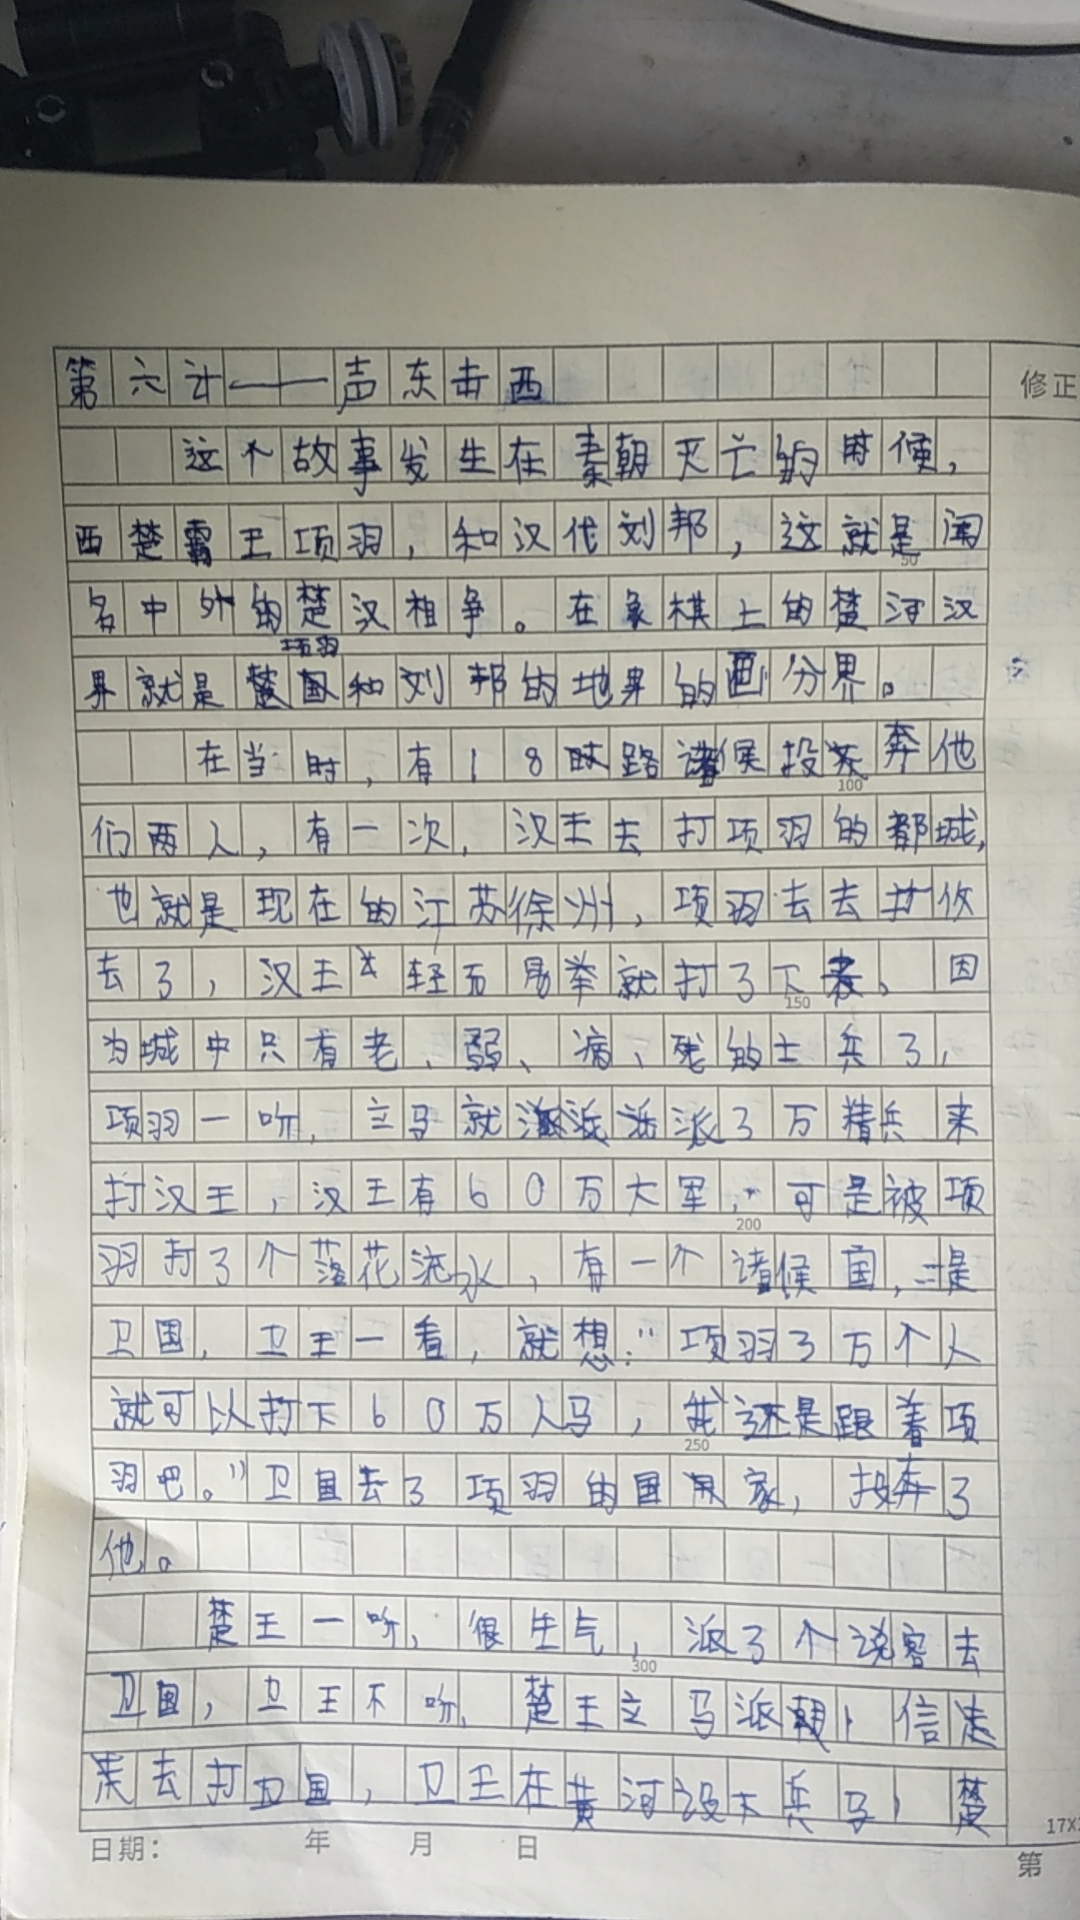 第六计——声东击西
修正
这个故事发生在秦朝灭亡的时候，
西楚霸王项羽，和汉代刘邦，这就是闻
50
名中外的楚汉相争。在象棋上的楚河汉
项羽
界就是楚国和刘邦的地界的画分界。
在当时，有18路诸侯投奔他
100
们两人，有一次，汉王去打项羽的都城，
也就是现在的江苏徐州，项羽去去攻
去了，汉王轻而易举就打了下来。因
150
为城中只有老、弱、病、残的士兵了，
项羽一听，立马就派了3万精兵来
打汉王，汉王有60万大军，可是被项
200
羽打了个落花流水，有一个诸候国，是
卫国，卫王一看，就想：“项羽3万个人
就可以打下60万人马，我还是跟着项
250
羽吧。”卫国去了项羽的国家，投奔了
他。
楚王一听，很生气，派了个说客去
300
卫国，卫王不听，楚王立马派韩信
去打卫国，卫王在黄河设大兵马，楚
17X
日期： 年 月 日
第